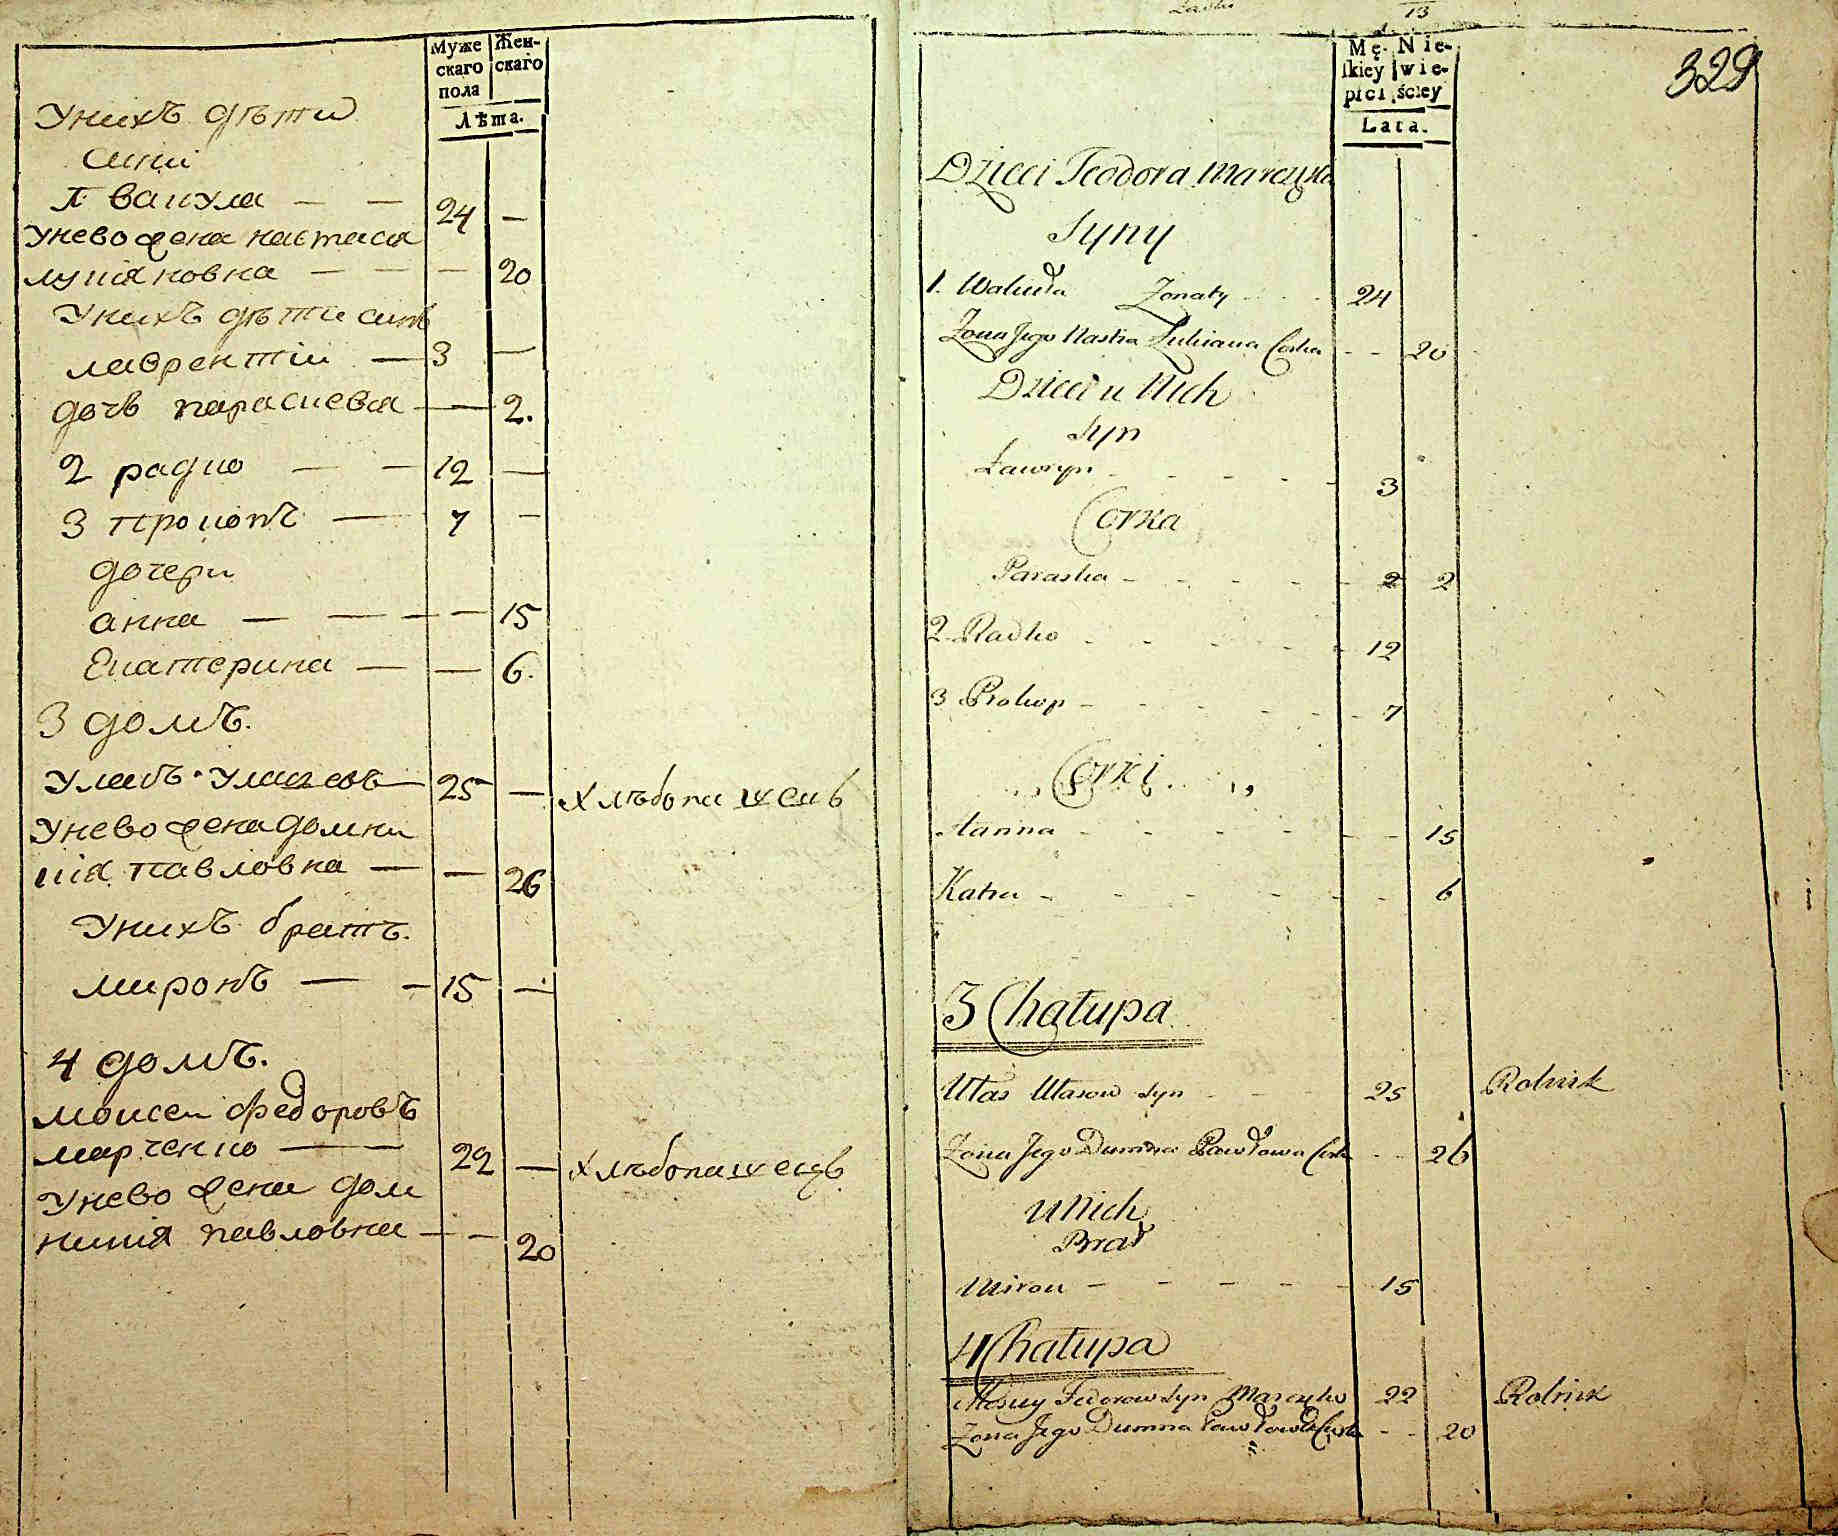 Муже Жен-
скаго скаго
пола
Лѣта.
Унихъ дѣти
сини
1 вакула — — 24 —
унево жена настасия
лукияновна — — — 20
Унихъ дѣти синъ
лаврентіи — 3 —
дочь парасиевия — 2.
2 радко — — 12 —
3 прокопъ — 7 —
дочери
анна — — — — 15
Екатерина — — 6.
3 домъ.
улась улазовъ — 25 — хлѣбопашецъ
унево жена домни
кия павловна — — 26
Унихъ братъ.
миронъ — — 15 —
4 домъ.
моисеи федоровъ
марченко — 22 — хлѣбопашецъ
унево жена дом
никия павловна — — 20
13
329
Mę- Nie-
skiey wie-
płci ściey
Lata.
Dzieci Teodora Marczyka
Syny
1. Wakuła Żonaty 24
Żona Jego Nastia Łukiana Corka - - 20
Dzieci u Nich
Syn
Ławryn - - - - 3
Corka
Paraska - - - - 2 2
2 Radko - - - - 12
3 Prokop - - - - 7
Corki
Hanna - - - - 15
Katia - - - - 6
3 Chałupa
Ułas Ułasow syn - - 25 Rolnik
Żona Jego Dumna Pawłowa Cork - - 26
u Nich
Brat
Miron - - - - 15
4 Chałupa
Mosiey Fedorow syn Marczyko 22 Rolnik
Żona Jego Dumna Pawłowa Corka - - 20